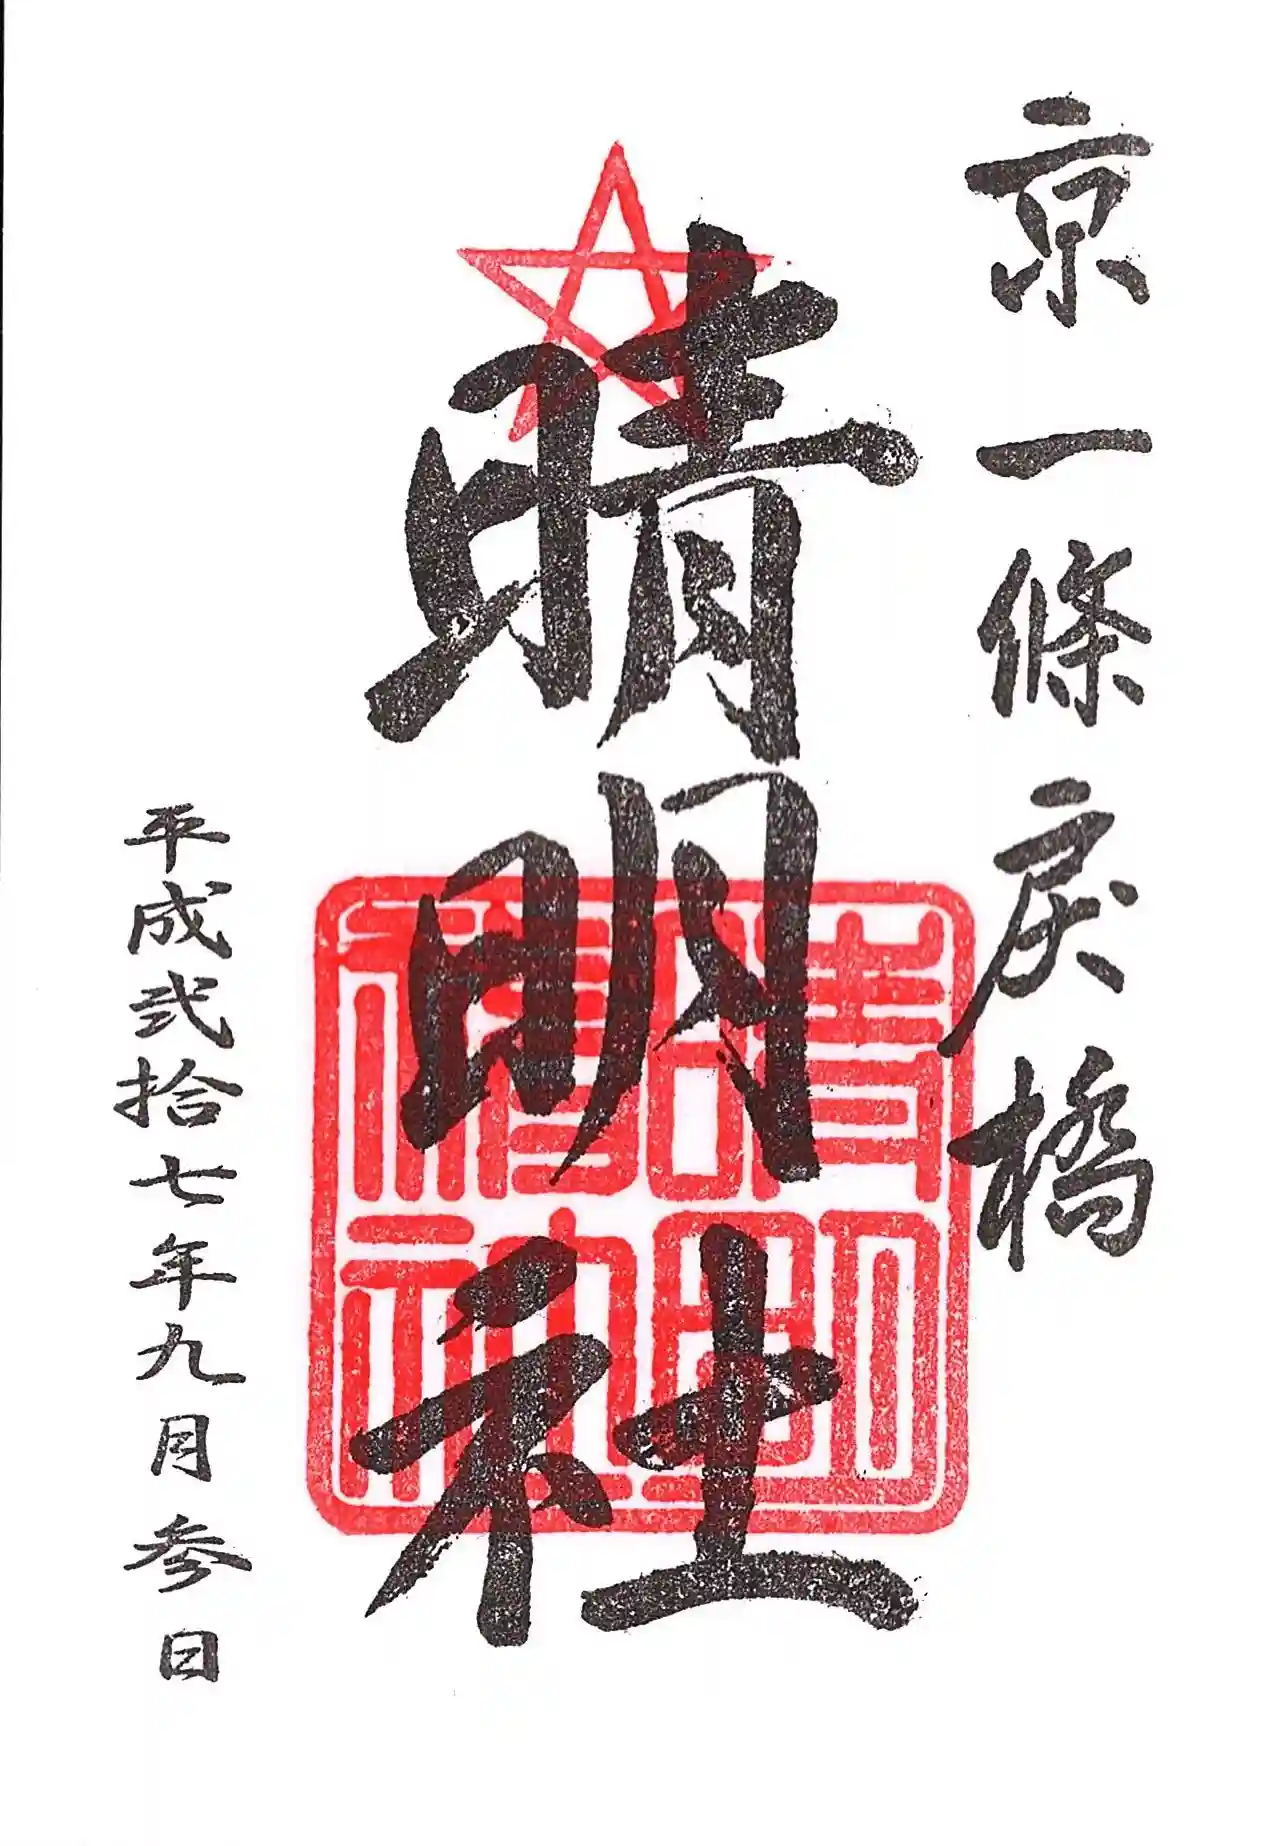 京一條戻橋
晴明社
晴明
神社
平成弐拾七年九月参日